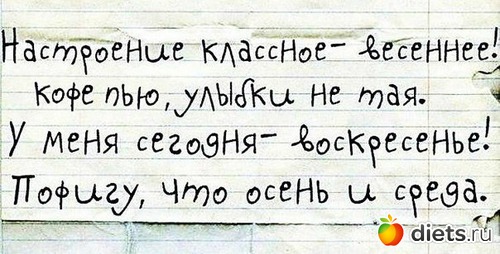 Настроение классное- весеннее!
кофе пью, улыбки не тая.
У меня сегодня- воскресенье!
Пофигу, что осень и среда.
diets.ru